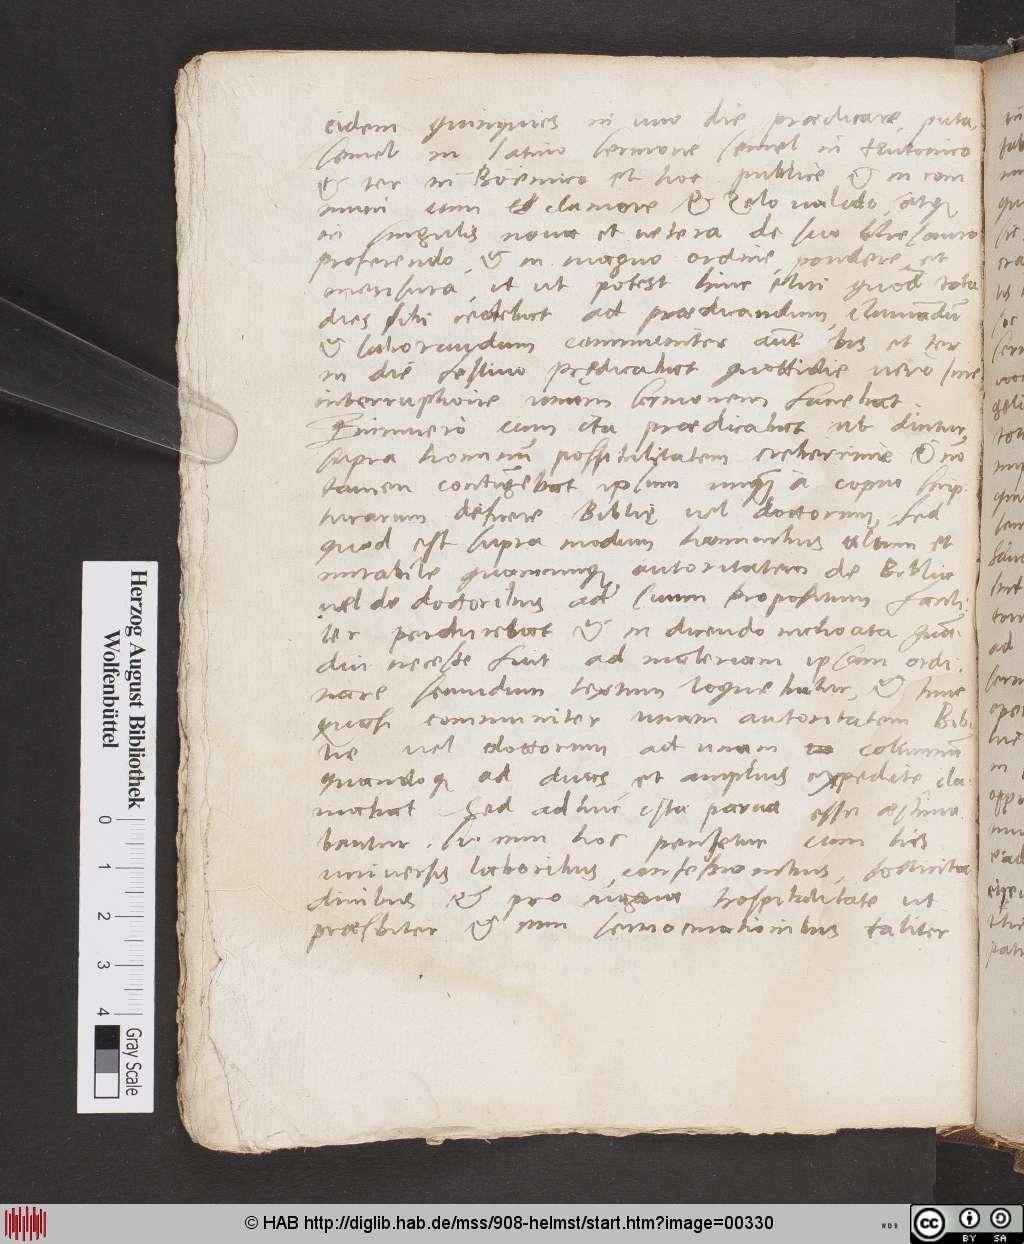 eidem quinquies in uno die prædicare, puta
semel in latino sermone semel in teutonico
& ter in Boemico et hoc publice & in com
muni cum clamore & zelo valido, atq
in singulis nova et vetera de suo thesauro
proferendo, & in magno ordine, pondere, et
mensura, ut ut potest hinc elici quod tota
dies sibi cedebat ad prædicandum,
& laborandum communiter aut bis et ter
in die festivo prędicabat quottidie vero sine
interruptione unum sermonem faciebat.
Enimvero cum ita prædicabat ut dicitur
supra hominum possibilitatem creberrime & non
tamen contingebat ipsum unquam a copia scrip
turarum deficere Biblię vel doctorum, sed
quod est supra modum hominibus altum et
mirabile quamcunq autoritatem de Biblie
vel de doctoribus ad suum propositum facili
ter perducebat & in dicendo inchoata quam
diu necesse fuit ad materiam ipsam ordi
nare secundum textum loquebatur, & hinc
quasi communiter unam autoritatem Bib
lie vel doctorum ad unam columnam
quandoq ad duas et amplius expedite cla
mabat Sed adhuc ista parva esse æstima
bantur. si cum hoc pensetur cum his
universis laboribus, confessionibus, sollicitu
dinibus & pro magna hospitalitate ut
præsbiter & cum sermocinationibus taliter
Herzog August Bibliothek
Wolfenbüttel
0 1 2 3 4
Gray Scale
© HAB http://diglib.hab.de/mss/908-helmst/start.htm?image=00330
WDB
cc BY SA